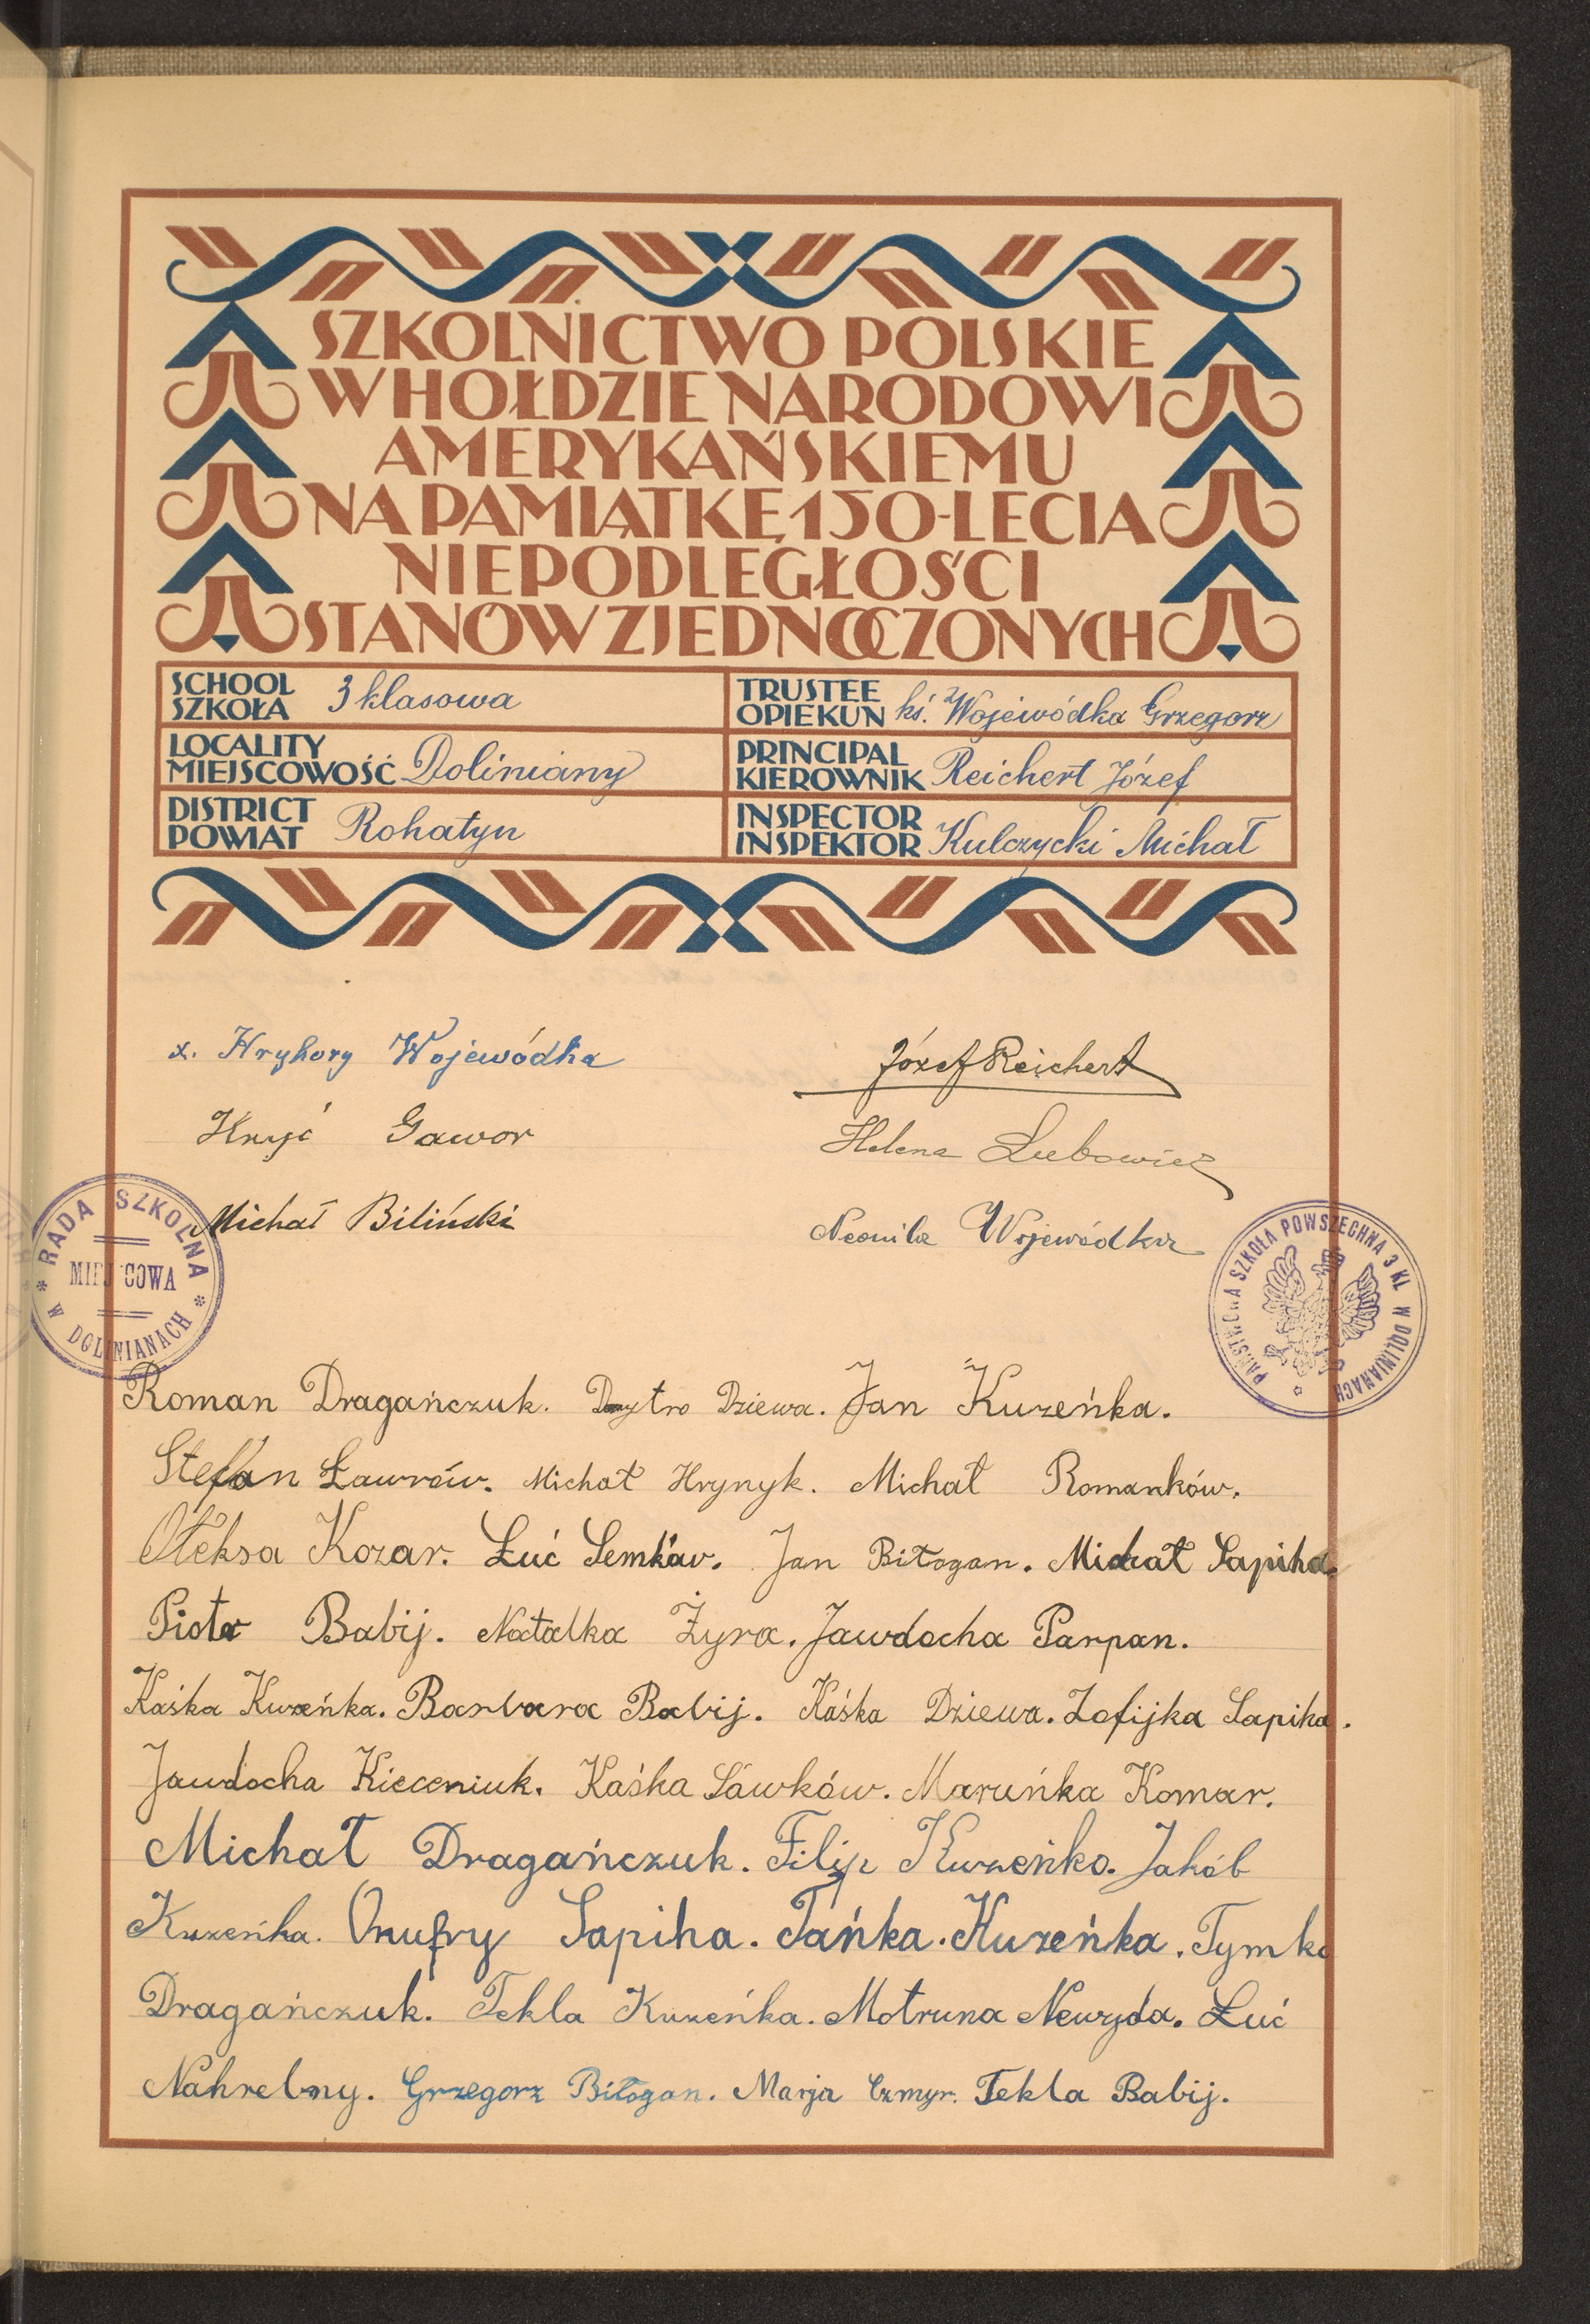 SZKOLNICTWO POLSKIE
W HOŁDZIE NARODOWI
AMERYKAŃSKIEMU
NA PAMIĄTKĘ 150-LECIA
NIEPODLEGŁOŚCI
STANÓW ZJEDNOCZONYCH
SCHOOL
SZKOŁA 3 klasowa
TRUSTEE
OPIEKUN ks. Wojewódka Grzegorz
LOCALITY
MIEJSCOWOŚĆ Doliniany
PRINCIPAL
KIEROWNIK Reichert Józef
DISTRICT
POWIAT Rohatyn
INSPECTOR
INSPEKTOR Kulczycki Michał
x. Hryhory Wojewódka
Józef Reichert
Hryć Gawor
Helena Lubowicz
Michał Biliński
Neonila Wojewódka
RADA SZKOLNA
MIEJSCOWA
W DOLINIANACH
PAŃSTWOWA SZKOŁA POWSZECHNA 3 KL W DOLINIANACH
Roman Dragańczuk. Dmytro Dziewa. Jan Kuzeńka.
Stefan Ławrów. Michał Hrynyk. Michał Romanków.
Ołeksa Kozar. Łuć Semków. Jan Biłogan. Michał Sapiha.
Piotr Babij. Natalka Żyra. Jawdocha Parpan.
Kaśka Kuzeńka. Barbara Babij. Kaśka Dziewa. Zofijka Sapiha.
Jawdocha Kieceniuk. Kaśka Sawków. Maruńka Komar.
Michał Dragańczuk. Filip Kuzeńko. Jakób
Kuzeńka. Onufry Sapiha. Tańka. Kuzeńka. Tymko
Dragańczuk. Tekla Kuzeńka. Motruna Newyda. Łuć
Nahrebny. Grzegorz Biłogan. Marja Czmyr. Tekla Babij.